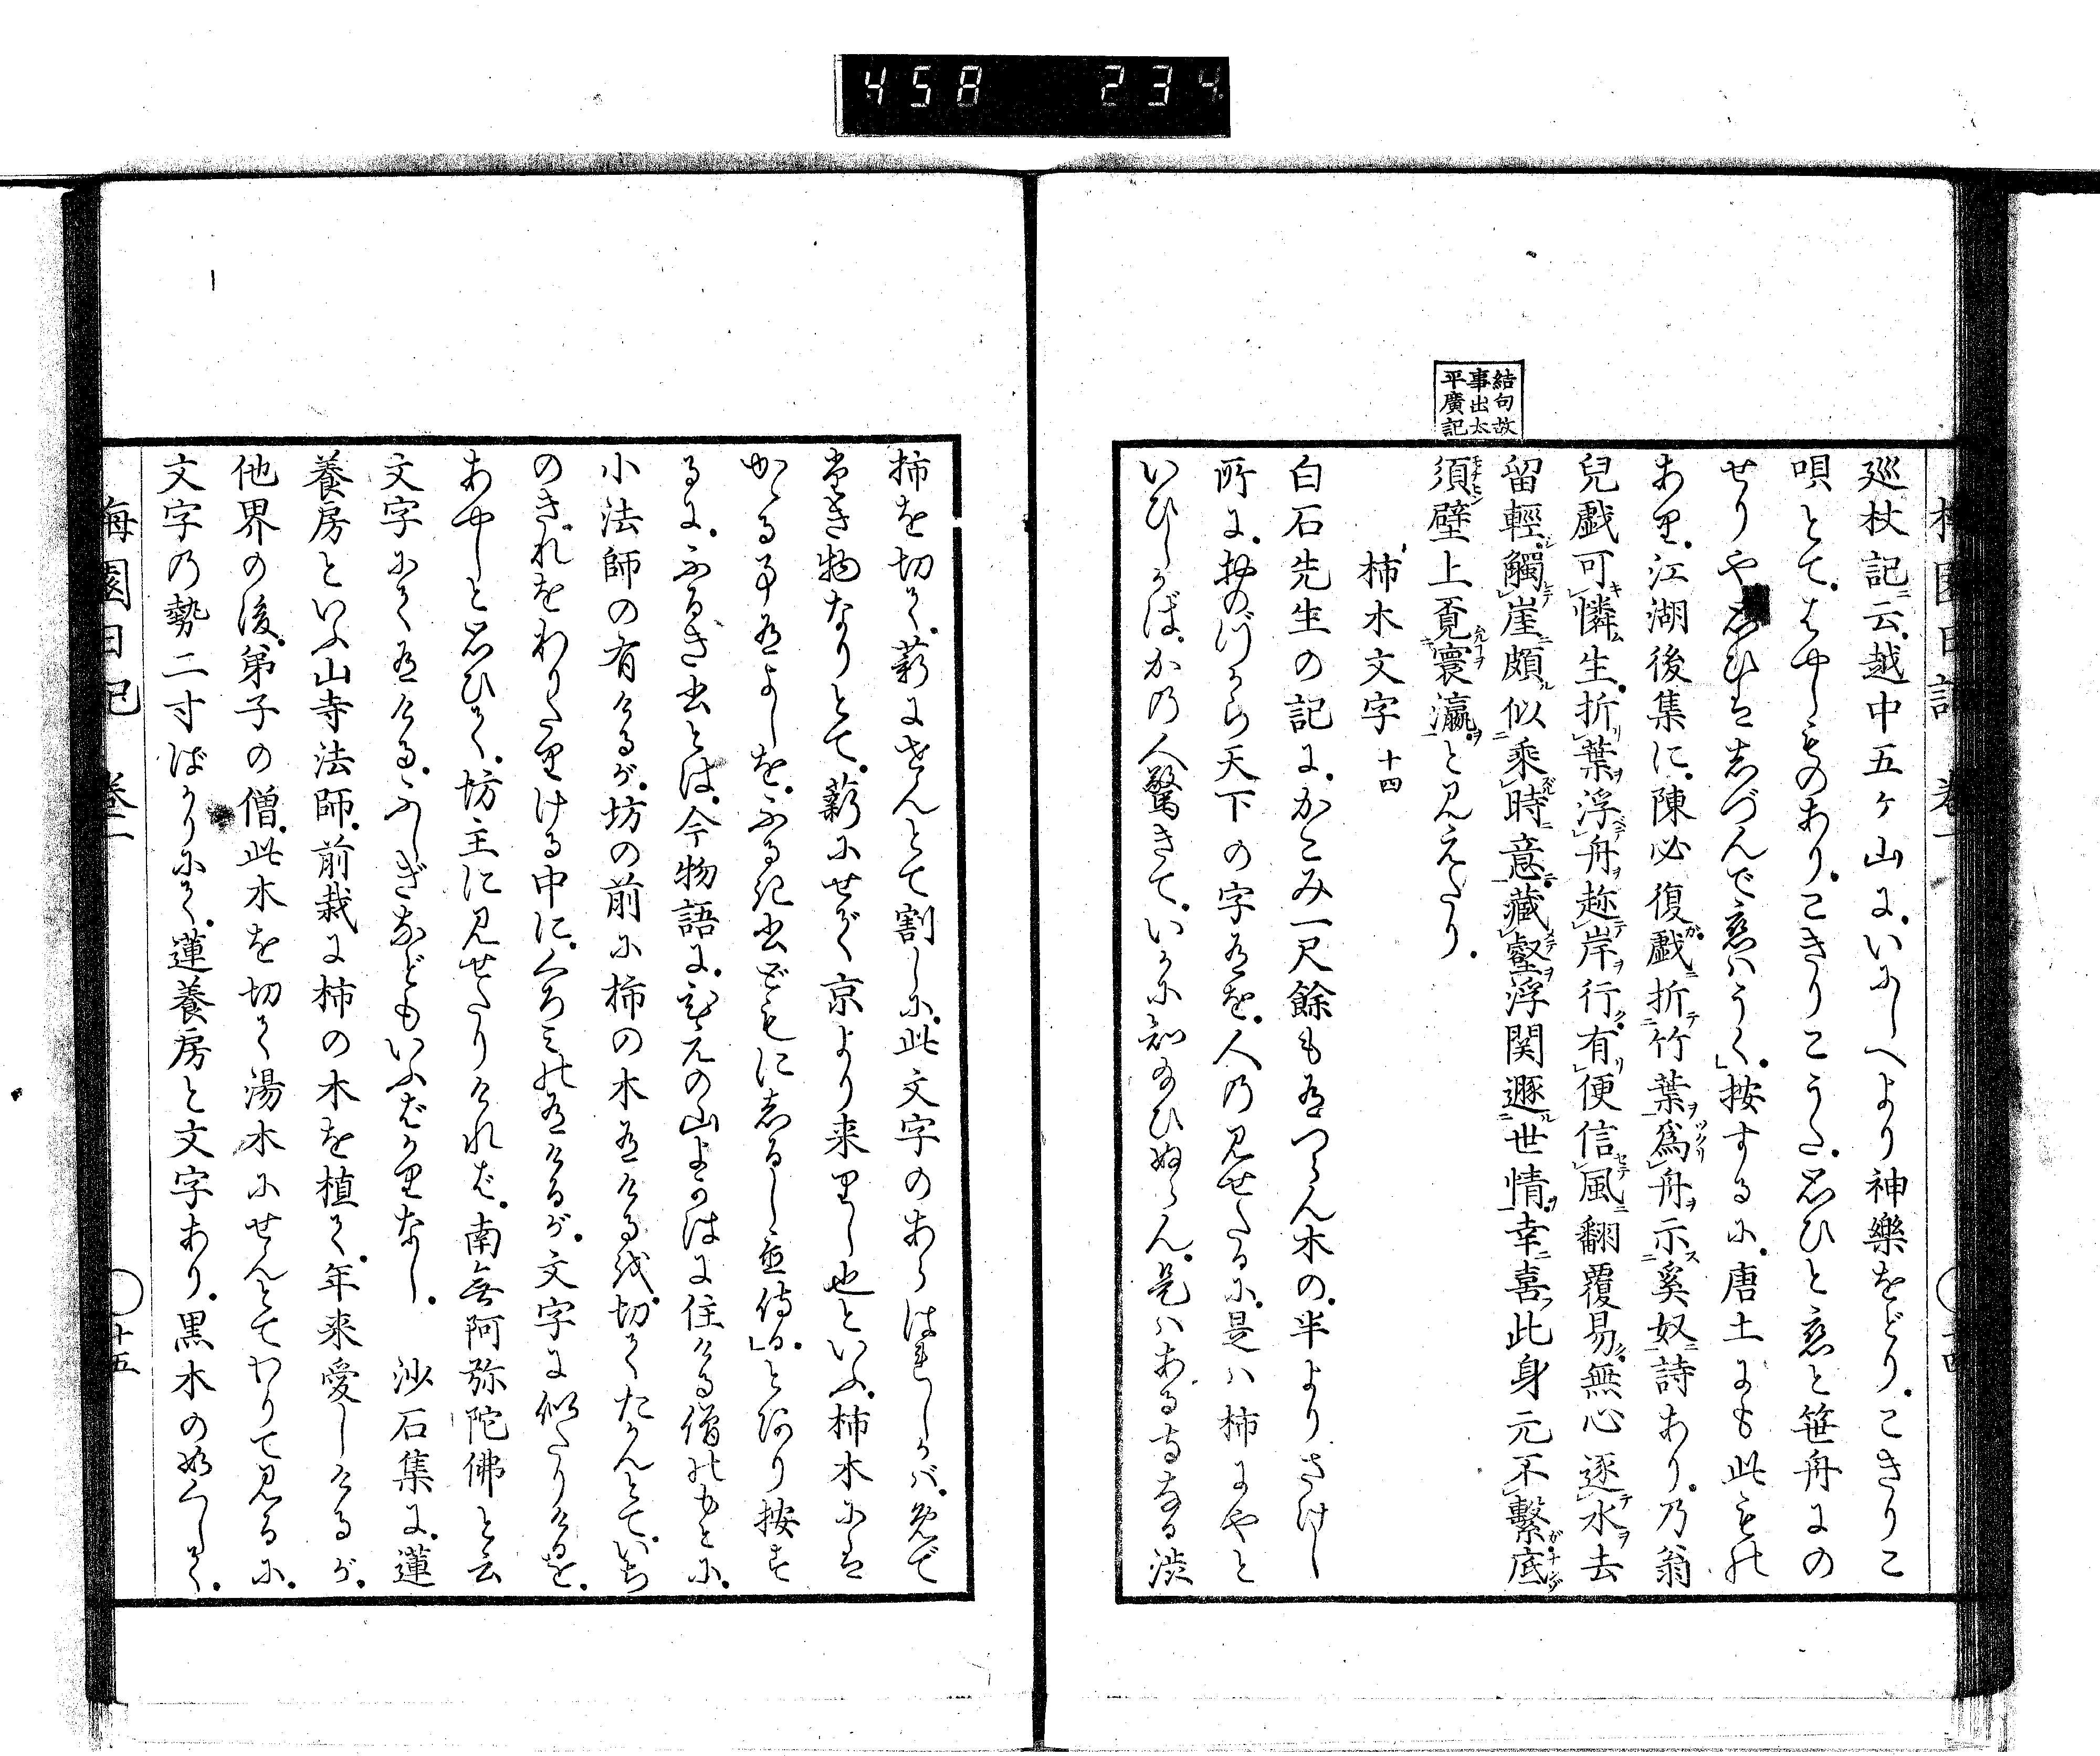 458 234
梅園日記 卷一 十四
廵杖記ニ云、越中五ケ山に、いにしへより神樂をどり、こきりこ
唄とて、はやしものあり、こきりこうた、思ひと恋と笹舟にの
せりや思ひはしづんで恋はうく」按するに、唐土にも此もの
あり、江湖後集に、陳必復戯折竹葉爲舟示奚奴詩あり、乃翁
兒戯可憐生、折葉浮舟趁岸行、有便信風翻覆易、無心逐水去
留輕、觸崖頗似乘時意、藏壑浮関遯世情、幸喜此身元不繫、底
須壁上覔寰瀛と見えたり、
結句故
事出太
平廣記
柿木文字 十四
白石先生の記に、かこみ一尺餘も有つらん木の、半よりさけし
所に、おのづから天下の字有を、人の見せたるに、是ハ柿にやと
いひしかば、かの人驚きて、いかに知給ひぬらん、是ハある寺なる渋
柿を切て、薪にせんとて割しに、此文字のあらはれしかバ、めで
たき物なりとて、薪にせで京より来りし也といふ、柿木には
かゝる事有よしを、ふるき書どもにしるし置侍る」とあり按ず
るに、ふるき書とは、今物語に、の山よかはに住ける僧のもとに、
小法師の有けるが、坊の前に柿の木有ける越、切てたかんとて、いち
のきれをわりたりける中に、くろみの有けるが、文字に似たりけるを、
あやしと思ひて、坊主に見せたりければ、南無阿弥陀佛と云
文字にて有ける、ふしぎなどもいふばかりなし、 沙石集に、蓮
養房といふ山寺法師、前栽に柿の木を植て、年来愛しけるが、
他界の後、弟子の僧、此木を切て湯木にせんとてわりて見るに、
文字の勢二寸ばかりにて、蓮養房と文字あり、黒木の如くして、
梅園日記 卷一 十五